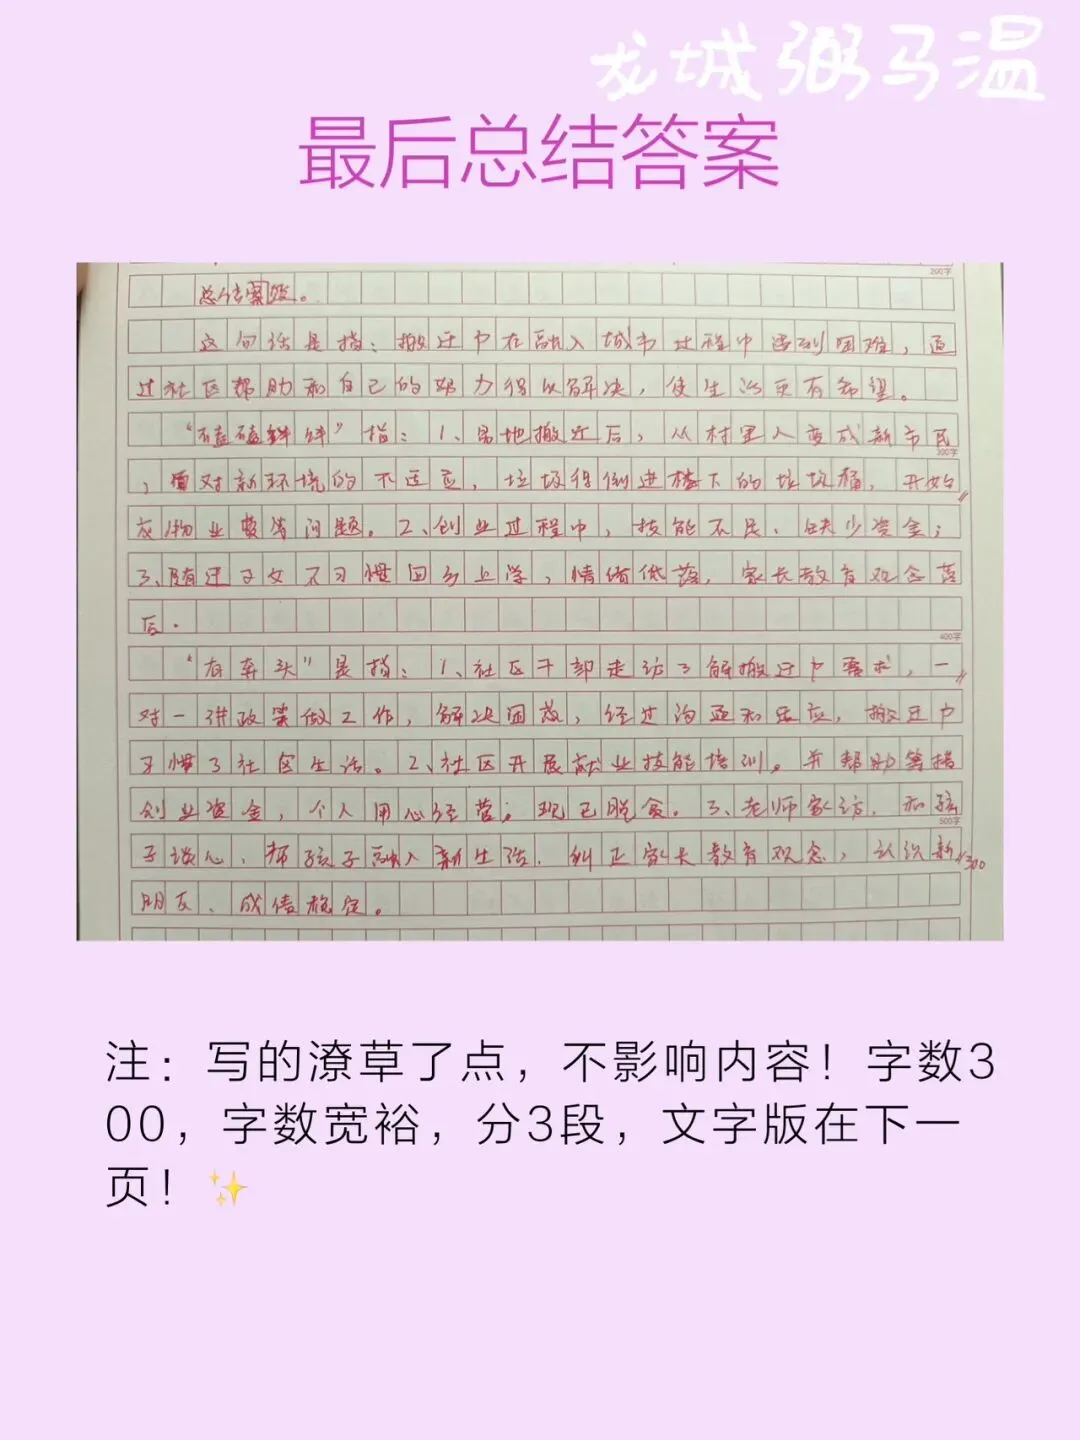 龙城弼马温
最后总结答案
200字
总结答案。
这句话是指：搬迁户在融入城市过程中遇到困难，通
过社区帮助和自己的努力得以解决，使生活更有希望。
“磕磕绊绊”指：1、易地搬迁后，从村里人变成新市民
300字
，面对新环境的不适应，垃圾得倒进楼下的垃圾桶，开始
交物业费等问题。2、创业过程中，技能不足、缺少资金；
3、随迁子女不习惯回乡上学，情绪低落，家长教育观念落
后。
400字
“有奔头”是指：1、社区干部走访了解搬迁户需求，一
对一讲政策做工作，解决困难，经过沟通和适应，搬迁户
习惯了社区生活。2、社区开展就业技能培训。并帮助筹措
创业资金，个人用心经营；现已脱贫。3、老师家访，和孩
500字
子谈心、帮孩子融入新生活，纠正家长教育观念，认识新
300
朋友、成绩稳定。
注：写的潦草了点，不影响内容！字数3
00，字数宽裕，分3段，文字版在下一
页！✨